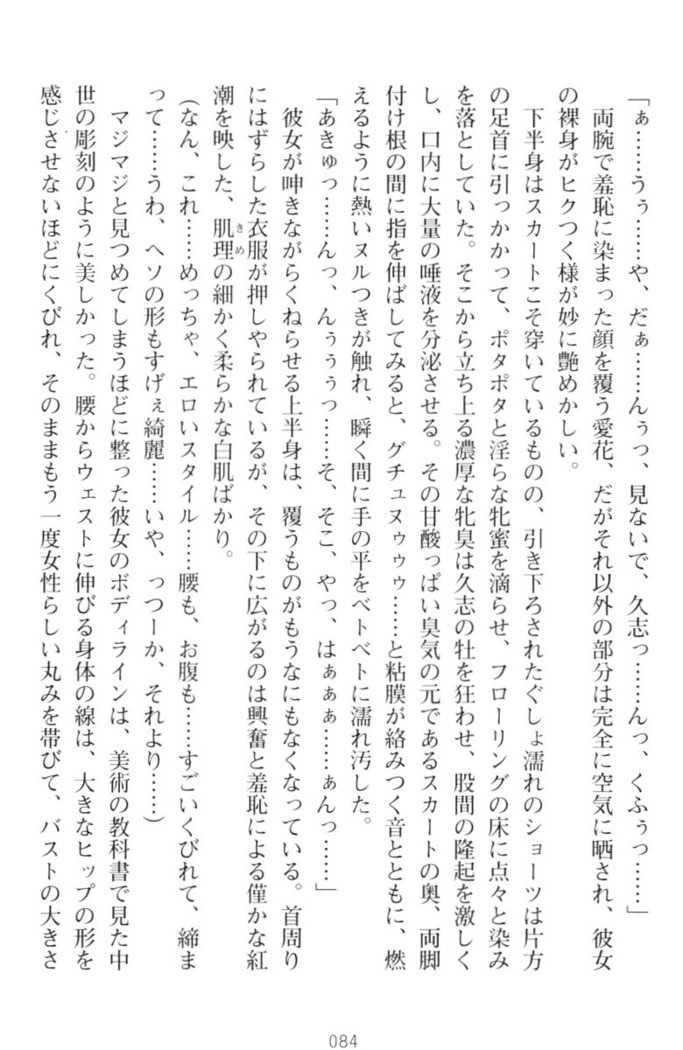 「ぁ……うぅ……や、だぁ……んぅっ、見ないで、久志っ……んっ、くふぅっ……」
両腕で羞恥に染まった顔を覆う愛花、だがそれ以外の部分は完全に空気に晒され、彼女
の裸身がヒクつく様が妙に艶めかしい。
下半身はスカートこそ穿いているものの、引き下ろされたぐしょ濡れのショーツは片方
の足首に引っかかって、ポタポタと淫らな牝蜜を滴らせ、フローリングの床に点々と染み
を落としていた。そこから立ち上る濃厚な牝臭は久志の牡を狂わせ、股間の隆起を激しく
し、口内に大量の唾液を分泌させる。その甘酸っぱい臭気の元であるスカートの奥、両脚
付け根の間に指を伸ばしてみると、グチュヌゥゥゥ……と粘膜が絡みつく音とともに、燃
えるように熱いヌルつきが触れ、瞬く間に手の平をベトベトに濡れ汚した。
「あきゅっ……んっ、んぅぅぅっ……そ、そこ、やっ、はぁぁぁ……ぁんっ……」
彼女が呻きながらくねらせる上半身は、覆うものがもうなにもなくなっている。首周り
にはずらした衣服が押しやられているが、その下に広がるのは興奮と羞恥による僅かな紅
潮を映した、肌理きめの細かく柔らかな白肌ばかり。
(なん、これ……めっちゃ、エロいスタイル……腰も、お腹も……すごいくびれて、締ま
って……うわ、ヘソの形もすげぇ綺麗……いや、っつーか、それより……)
マジマジと見つめてしまうほどに整った彼女のボディラインは、美術の教科書で見た中
世の彫刻のように美しかった。腰からウェストに伸びる身体の線は、大きなヒップの形を
感じさせないほどにくびれ、そのままもう一度女性らしい丸みを帯びて、バストの大きさ
084